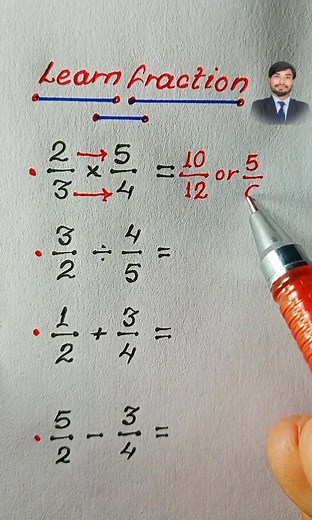 Learn fraction
2/3 × 5/4 = 10/12 or 5/
3/2 ÷ 4/5 =
1/2 + 3/4 =
5/2 - 3/4 =